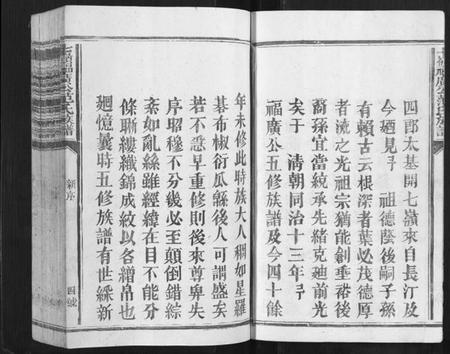 四郎太基開七嶺來自長汀及
今廼見 祖德蔭後嗣子孫
有賴古云根深者葉必茂德厚
者流之光祖宗猶能創垂裕後
裔孫宜當繞承先緒克廸前光
矣于 清朝同治十三年
福廣公五修族譜及今四十餘
年未修此時族大人稠如星羅
碁布椒衍瓜緜後人可謂盛矣
若不憑早重修則後來尊卑失
序昭穆不分幾必至顛倒錯綜
紊如亂絲雖經緯在目不能分
條晰縷織錦成紋以各繒帛也
廻憶曩時五修族譜有世綵新
新序
四號